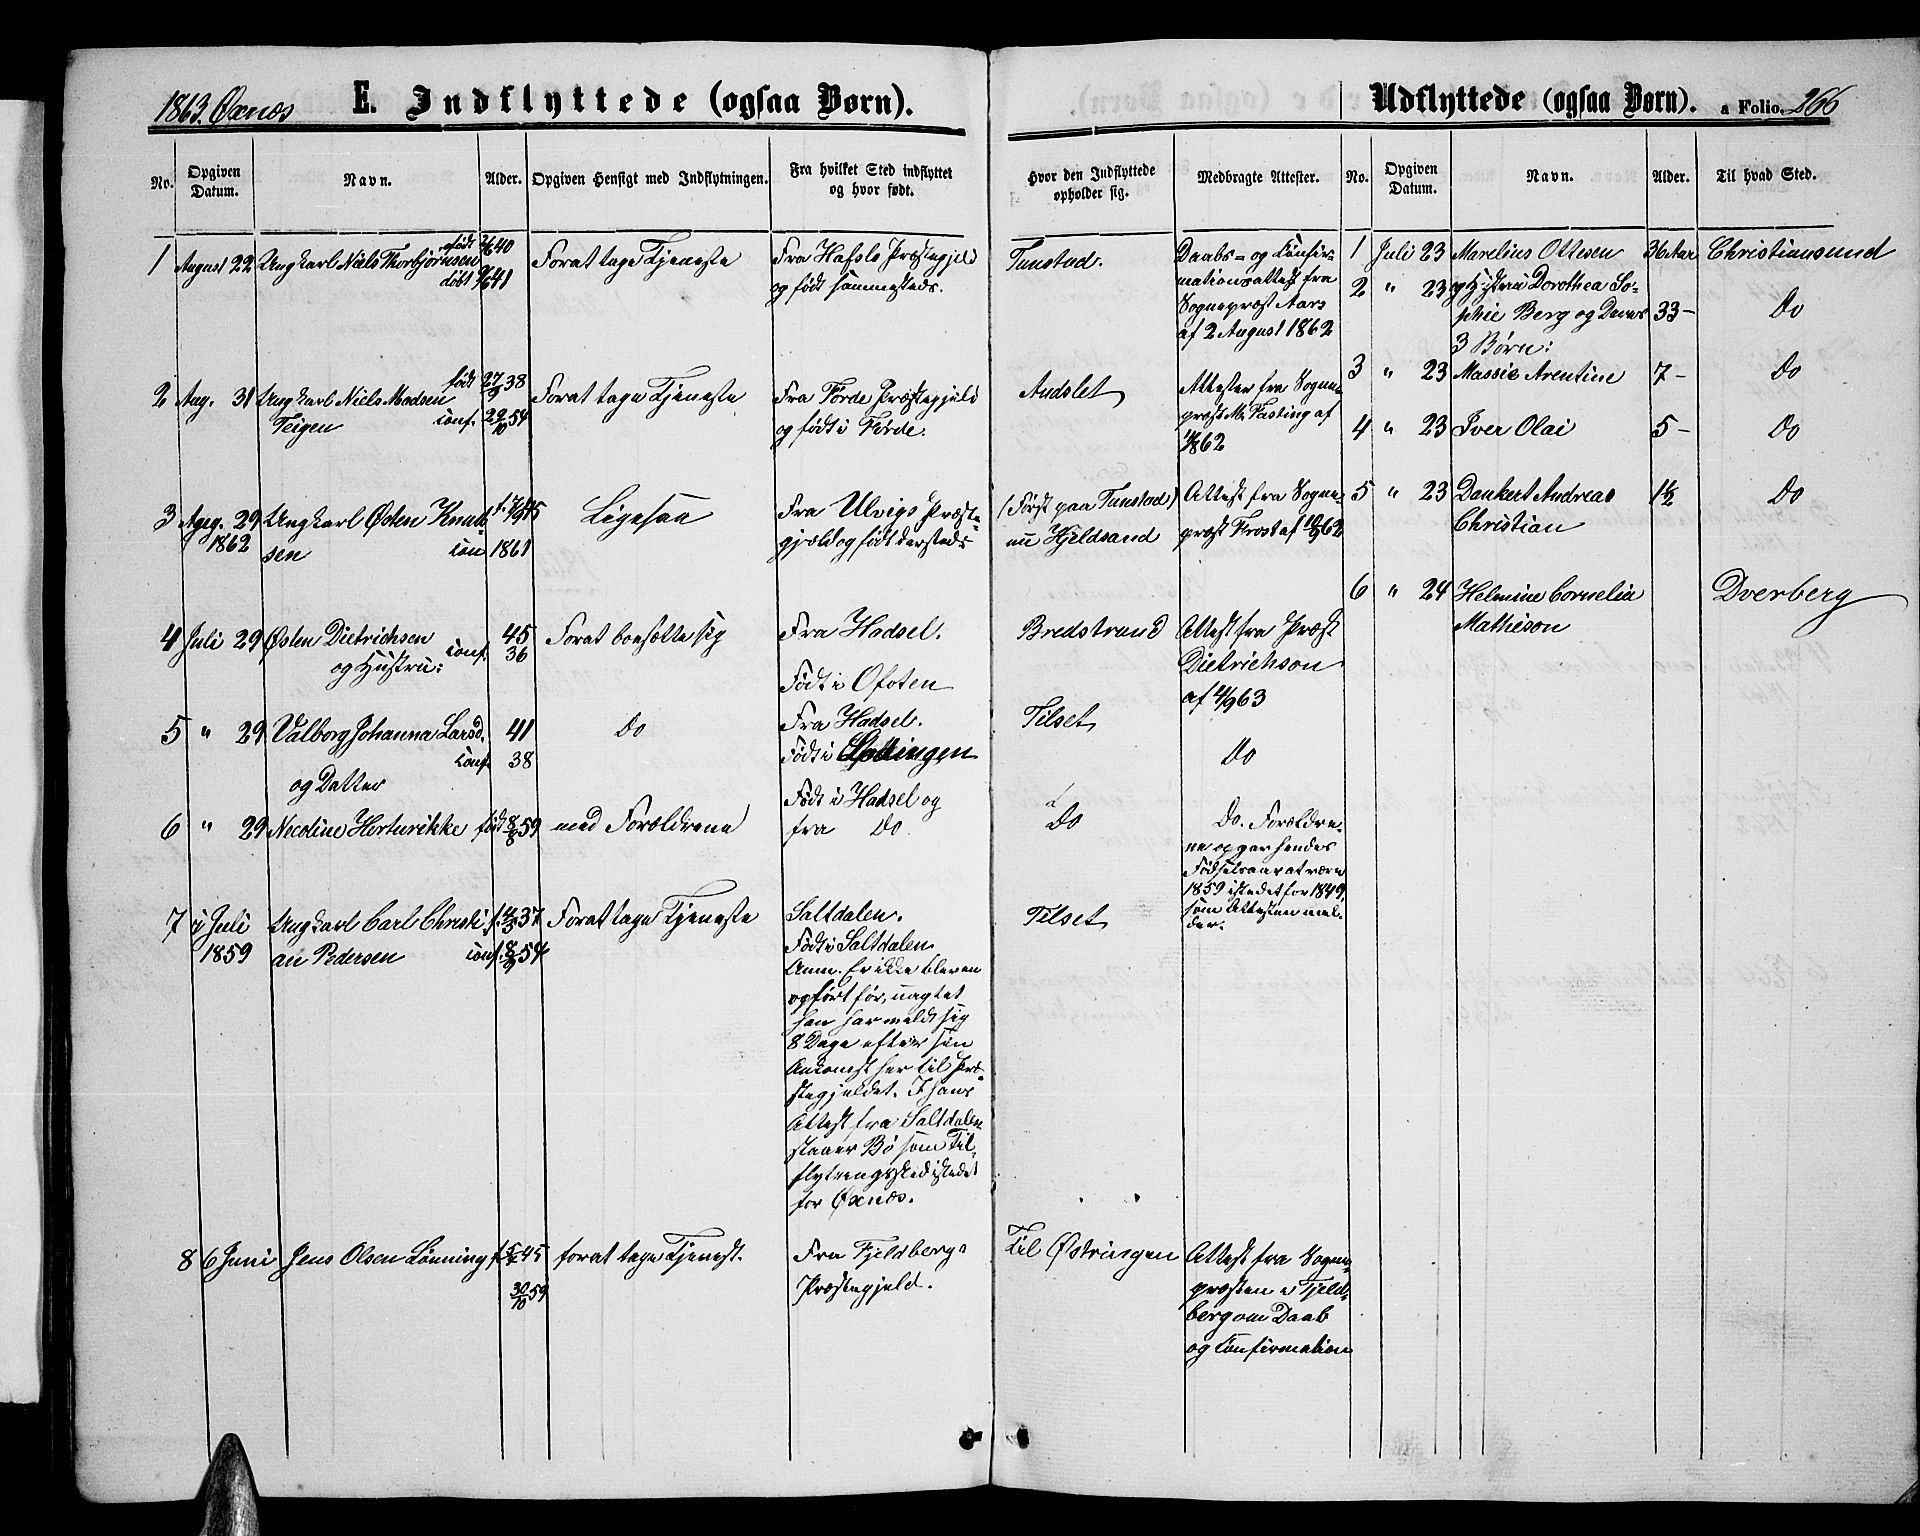 1863. Øxnæs
E. Indflyttede (ogsaa Børn).
Udflyttede (ogsaa Børn).
a Folio. 266
No.
Opgiven Datum.
Navn.
Alder.
Opgiven Hensigt med Indflytningen.
Fra hvilket Sted indflyttet
og hvor født.
Hvor den Indflyttede
opholder sig.
Medbragte Attester.
No.
Opgiven Datum.
Navn.
Alder.
Til hvad Sted.
1 August 22 Ungkarl Niels Thorbjørnsen
født 40
døbt 41
Forat tage Tjeneste
Fra Hafslo Præstegjeld
og født sammesteds.
Tunstad.
Daabs- og Confir-
mationsattest fra
Sognepræst Aars
af 2 August 1862
2 Aug. 31 Ungkarl Niels Madsen
Teigen
født 27/9 38
conf. 22/10 54
Forat tage Tjeneste
Fra Førde Præstegjeld
og født i Førde.
Andslet
Attester fra Sogne-
præst M. Fasting af
62
3 Aug. 29
1862
Ungkarl Østen Knud-
sen
f. 45
con 1861
Ligesaa
Fra Ulvigs Præste-
gjeld og født dersteds
(Først paa Tunstad)
nu Hjeldsand
Attest fra Sogne-
præst Frost af 62
4 Juli 29 Østen Dietrichsen
og Hustru:
45
conf. 36
Forat bosætte sig
Fra Hadsel.
Født i Ofoten
Bredstrand
Attest fra Præst
Dietrichson
af 4/9 63
5 " 29 Valborg Johanna Larsd.
og Datter
41
conf. 38
Do
Fra Hadsel.
Født i
Tilset
Do
6 " 29 Nicoline Hertinrikke
født 8/8 59
med Forældrene
Født i Hadsel og
fra Do
Do
Do. Forældre-
ne opgar hendes
Fødselsaar at være
1859 istedet for 1849,
som Attesten mel-
der.
7 i Juli
1859
Ungkarl Carl Christi-
an Pedersen
f. 37
conf. 8/9 54
Forat tage Tjeneste
Saltdalen.
Født i Saltdalen
Anm. Er ikke bleven
opført før, uagtet
han har meldt sig
8 Dage efter sin
Ankomst her til Præ-
stegjeldet. I hans
Attest fra Saltdalen
staaer Bø som Til-
flytningssted istedet
for Øxnæs.
Tilset
8 6 Juni Jens Olsen Lønning
f. 45
30/10 59
forat tage Tjenest.
Fra Fjeldbergs
Præstegjeld.
Til Østringen
Attest fra Sogne-
præsten i Fjeld-
berg om Daab
og Confirmation
1 Juli 23 Marelius Ottesen 36 Aar Christiansund
2 " 23 og Hustru Dorothea So-
phie Berg og Deres 33 - Do
3 Børn:
3 " 23 Massie Arentine 7 - Do
4 " 23 Iver Olai 5 - Do
5 " 23 Dankert Andreas 1 1/2 Do
Christian
6 " 24 Helmine Cornelia Dverberg
Matheson